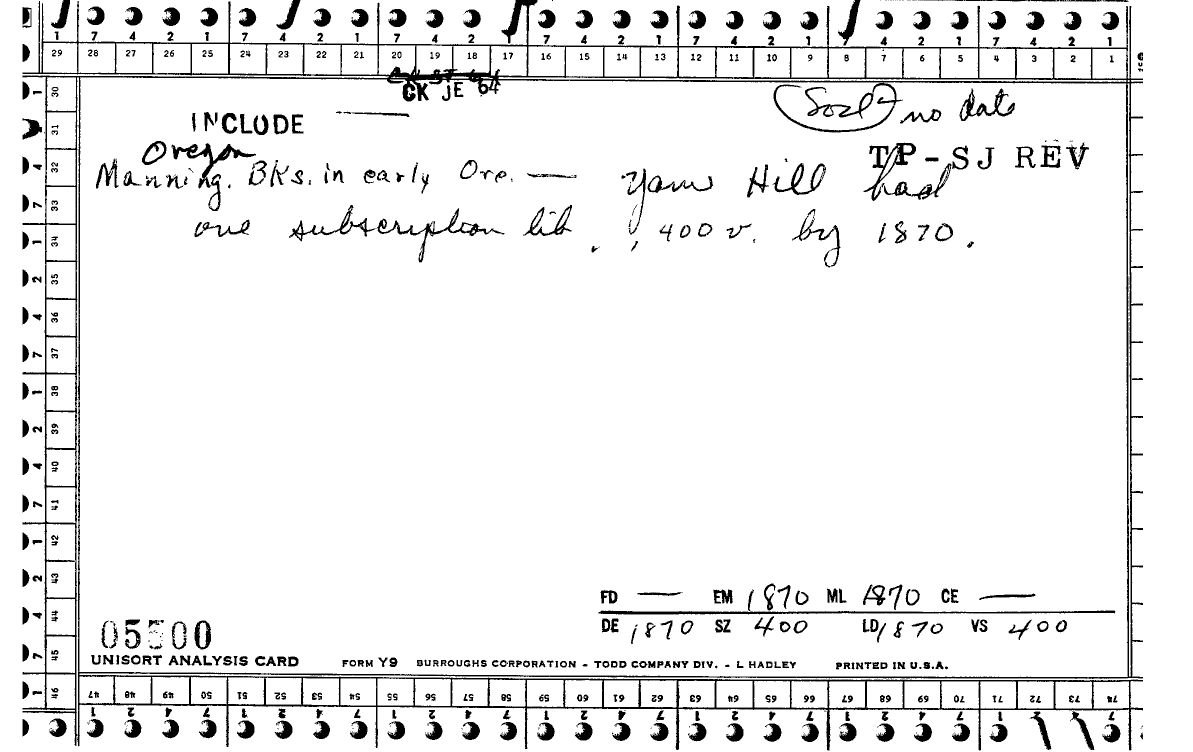 1 7 4 2 1 7 4 2 1 7 4 2 1 7 4 2 1 7 4 2 1 7 4 2 1 7 4 2 1
29 28 27 26 25 24 23 22 21 20 19 18 17 16 15 14 13 12 11 10 9 8 7 6 5 4 3 2 1
CK JE 64
no date
INCLUDE
Oregon
TP-SJ REV
Manning. Bks. in early Ore. — Yam Hill had
one subscription lib., 400 v. by 1870.
1 30
31
4 32
7 33
1 34
2 35
4 36
7 37
1 38
2 39
4 40
7 41
1 42
2 43
4 44
7 45
1 46
FD — EM 1870 ML 1870 CE —
DE 1870 SZ 400 LD 1870 VS 400
05500
UNISORT ANALYSIS CARD FORM Y9 BURROUGHS CORPORATION - TODD COMPANY DIV. - L HADLEY PRINTED IN U.S.A.
47 48 49 50 51 52 53 54 55 56 57 58 59 60 61 62 63 64 65 66 67 68 69 70 71 72 73 74
1 2 4 7 1 2 4 7 1 2 4 7 1 2 4 7 1 2 4 7 1 2 4 7 1 2 4 7